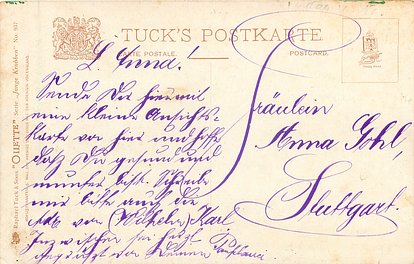 TUCK'S POSTKARTE.
CARTE POSTALE.
POSTCARD.
Raphael Tuck & Sons "OILETTE" Serie "Junge Knabben" No. 917
L. Anna!
Sende Dir hiermit
eine kleine Ansichts-
karte von hier und hoffe
daß Du gesund und
munter bist. Schreibe
mir bitte auch die
Adr. von Wilhelm, Karl
Inzwischen sei herzl
gegrüßt von Deinem
Fräulein
Anna Gohl,
Stuttgart.